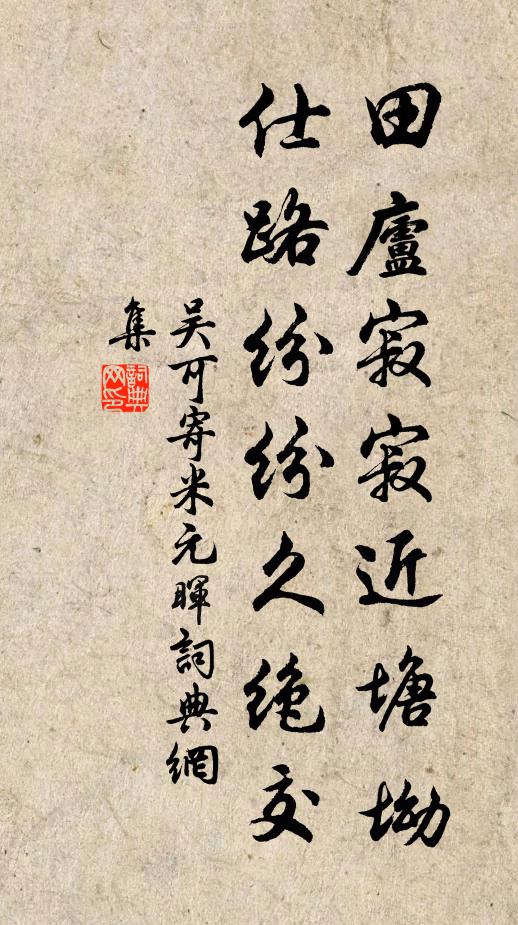 田廬寂寂近塘坳
仕路紛紛久絶交
吴可寄米元暉詞典網
集
詞典网印